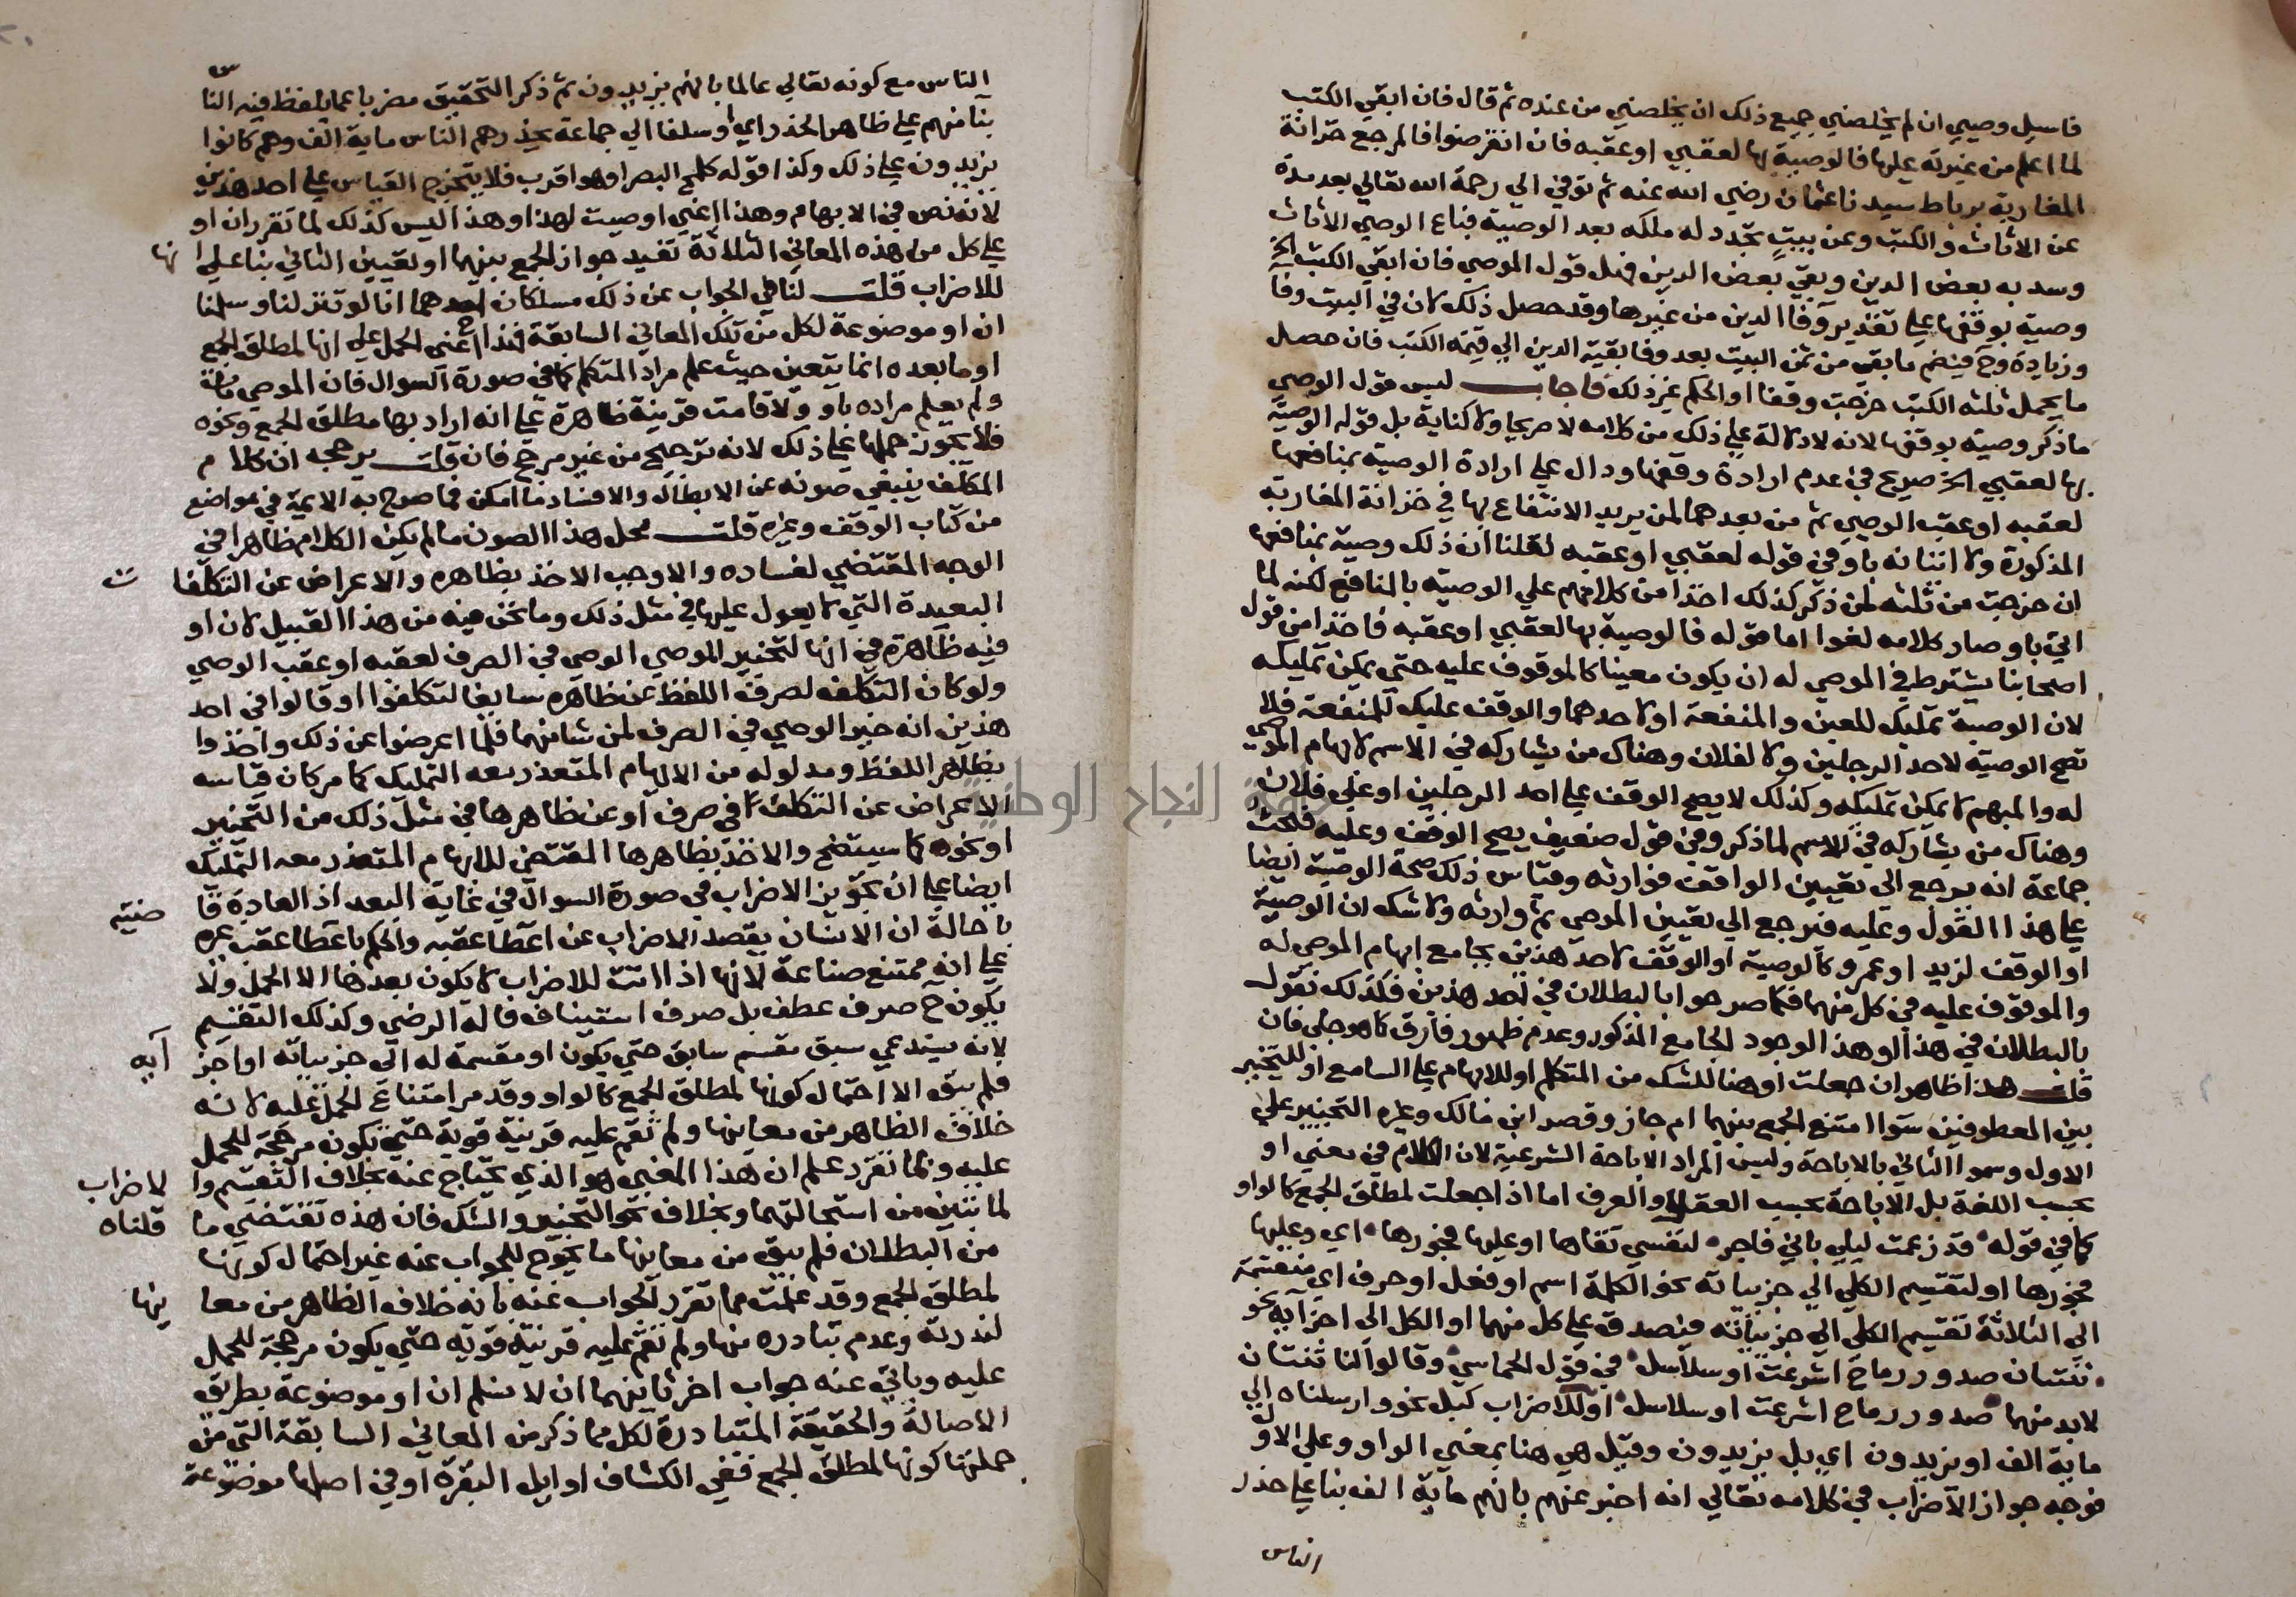 فاسيل وصيي ان لم يخلصني جميع ذلك ان يخلصني من عنده ثم قال فان ابقي الكتب
لما اعلم من غيرته عليها فالوصية بها لعقبي او عقبه فان انقرضوا فالمرجع خزانة
المغاربة برباط سيدنا عثمان رضي الله عنه ثم توفي الي رحمة الله تعالي بعد مدة
عن الاثاث والكتب وعن بيت تجدد له ملكه بعد الوصية فباع الوصي الاثاث
وسد به بعض الدين وبقي بعض الدين فهل قول الموصي فان ابقي الكتب الخ
وصية بوقفها علي تقدير وفا الدين من غيرها وقد حصل ذلك لان في البيت وفا
وزيادة وح فيضم ما بقي من ثمن البيت بعد وفا بقية الدين الي قيمة الكتب فان حصل
ما يحمل ثلثه الكتب خرجت وقفا او الحكم غير ذلك فاجاب ليس قول الوصي
ما ذكر وصية بوقفها لانه لا دلالة علي ذلك من كلامه لا صريحا ولا كناية بل قوله الوصية
بها لعقبي الخ صريح في عدم ارادة وقفها ودال علي ارادة الوصية بمنافعها
لعقبه او عقب الوصي ثم من بعدهما لمن يريد الانتفاع بها في خزانة المغاربة
المذكورة ولا اتيانه باو في قوله لعقبي او عقبه لقلنا ان ذلك وصية بمنافعها
ان خرجت من ثلثه لمن ذكر كذلك اخذا من كلامهم علي الوصية بالمنافع لكنه لما
اتي باو صار كلامه لغوا اما قوله فالوصية بها لعقبي او عقبه فاخذا من قول
اصحابنا يشترط في الموصي له ان يكون معينا كالموقوف عليه حتي يمكن تمليكه
لان الوصية تمليك للعين والمنفعة او لاحدهما والوقف تمليك للمنفعة فلا
تصح الوصية لاحد الرجلين ولا لفلان وهناك من يشاركه في الاسم لابهام الموصي
له والمبهم لا يمكن تمليكه وكذلك لا يصح الوقف علي احد الرجلين او علي فلان
وهناك من يشاركه في الاسم لما ذكر وفي قول ضعيف يصح الوقف وعليه فبحث
جماعة انه يرجع الي تعيين الواقف فوارثه وقياس ذلك صحة الوصية ايضا
علي هذا القول وعليه فيرجع الي تعيين الموصي ثم وارثه ولا شك ان الوصية
او الوقف لزيد او عمرو كالوصية او الوقف لاحد هذين بجامع ابهام الموصي له
والموقوف عليه في كل منهما فكما صرحوا بالبطلان في احد هذين فكذلك نقول
بالبطلان في هذا او هذا لوجود الجامع المذكور وعدم ظهور فارق كما هو جلي فان
قلت هذا ظاهر ان جعلت او هنا للشك من المتكلم او للابهام علي السامع او للتخيير
بين المعطوفين سوا امتنع الجمع بينهما ام جاز وقصر ابن مالك وغيره التخيير علي
الاول وسموا الثاني بالاباحة وليس المراد الاباحة الشرعية لان الكلام في معني او
بحسب اللغة بل الاباحة بحسب العقل والعرف اما اذا جعلت لمطلق الجمع كالواو
كما في قوله قد زعمت ليلي باني فاجر لنفسي تقاها او عليها فجورها اي وعليها
فجورها او لتقسيم الكلي الي جزيياته نحو الكلمة اسم او فعل او حرف اي منقسمة
الي الثلاثة تقسيم الكلي الي جزيياته فيصدق علي كل منهما او الكل الي اجزآيه نحو
ثنتان صدور رماح اشرعت او سلاسل في قول الحماسي وقالوا لنا ثنتان
لابد منهما صدور رماح اشرعت او سلاسل او للاضراب كبل نحو وارسلناه الي
ماية الف او يزيدون اي بل يزيدون وقيل هي هنا بمعني الواو وعلي الاول
فوجه جواز الاضراب في كلامه تعالي انه اخبر عنهم بانهم ماية الف بنا علي حذر
الناس
الناس مع كونه تعالي عالما بانهم يزيدون ثم ذكر التحقيق مضربا عما يلفظ فيه الناس
بنا منهم علي ظاهر الحذر اي وسلفا الي جماعة يحذرهم الناس ماية الف وهم كانوا
يزيدون علي ذلك وكذا قوله كلمح البصر او هو اقرب فلا يتخرج القياس علي احد هذين
لانه نص في الابهام وهذا اعني اوصيت لهذا او هذا ليس كذلك لما تقرر ان او
علي كل من هذه المعاني الثلاثة تفيد جواز الجمع بينهما او تعيين الثاني بنا علي انها
للاضراب قلت لنا في الجواب عن ذلك مسلكان احدهما انا لو تنزلنا وسلمنا
ان او موضوعة لكل من تلك المعاني السابقة فذا اعني الحمل علي انها لمطلق الجمع
او ما بعده انما يتعين حيث علم مراد المتكلم كما في صورة السوال فان الموصي مات
ولم يعلم مراده باو ولا قامت قرينة ظاهرة علي انه اراد بها مطلق الجمع ونحوه
فلا يجوز حملها علي ذلك لانه ترجيح من غير مرجح فان قلت يرجحه ان كلام
المكلف ينبغي صونه عن الابطال والافساد ما امكن كما صرح به الايمة في مواضع
من كتاب الوقف وغيره قلت محل هذا الصون ما لم يكن الكلام ظاهرا في
الوجه المقتضي لفساده والا وجب الاخذ بظاهره والاعراض عن التكلفات
البعيدة التي لا يعول عليها في مثل ذلك وما نحن فيه من هذا القبيل لان او
فيه ظاهرة في انها لتخيير الموصي الوصي في الصرف لعقبه او عقب الوصي
ولو كان التكلف لصرف اللفظ عن ظاهره سايغا لتكلفوا او قالوا في احد
هذين انه خير الوصي في الصرف لمن شا منهما فلما اعرضوا عن ذلك واخذوا
بظاهر اللفظ ومدلوله من الابهام المتعذر معه التمليك كما مر كان قياسه
الاعراض عن التكلف في صرف او عن ظاهرها في مثل ذلك من التخيير
او نحوه كما سيتضح والاخذ بظاهرها المقتضي للابهام المتعذر معه التمليك
ايضا علي ان تجويز الاضراب في صورة السوال في غاية البعد اذ العادة قاضية
باحالة ان الانسان يقصد الاضراب عن اعطا عقبه والحكم باعطا عقب غيره
علي انه ممتنع صناعة لانها اذا اتت للاضراب لا يكون بعدها الا الجمل ولا
يكون ح حرف عطف بل حرف استيناف قاله الرضي وكذلك التقسيم
لانه يستدعي سبق مقسم سابق حتي يكون او مقسمة له الي جزيياته او اجزآيه
فلم يبق الا احتمال كونها لمطلق الجمع كالواو وقد مر امتناع الحمل عليه لانه
خلاف الظاهر من معانيها ولم تقم عليه قرينة قوية حتي يكون مرجحة للحمل
عليه وبما تقرر علم ان هذا المعني هو الذي يحتاج عنه بخلاف التقسيم والاضراب
لما تبين من استحالتهما وبخلاف نحو التخيير والشك فان هذه تقتضي ما قلناه
من البطلان فلم يبق من معانيها ما يحوج للجواب عنه غير احتمال كونها
لمطلق الجمع وقد علمت مما تقرر الجواب عنه بانه خلاف الظاهر من معانيها
لندرته وعدم تبادره منها ولم تقم عليه قرينة قوية حتي يكون مرجحة للحمل
عليه وياتي عنه جواب اخر ثانيهما ان لا نسلم ان او موضوعة بطريق
الاصالة والحقيقة المتبادرة لكل مما ذكر من المعاني السابقة التي من
جملتها كونها لمطلق الجمع ففي الكشاف اوايل البقرة او في اصلها موضوعة